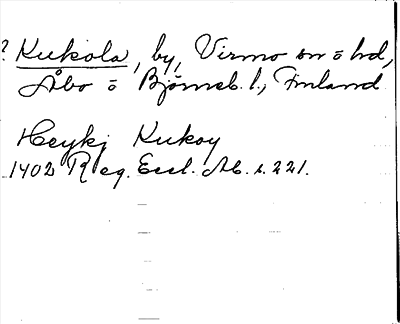 ? Kukola, by, Virmo sn o hd,
Åbo o Björneb. l., Finland
Heyki Kukoy
1402 Reg. Eccl. Ab. s. 221.